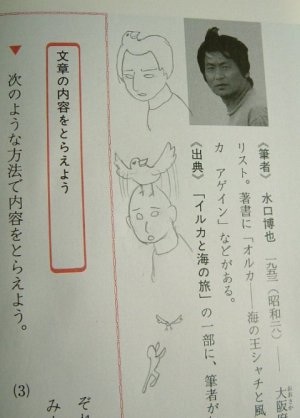 《筆者》 水口博也 一九五三(昭和二八)―― 大阪府
リスト。著書に「オルカ――海の王シャチと風
カ アゲイン」などがある。
《出典》 「イルカと海の旅」の一部に、筆者が
文章の内容をとらえよう
▼ 次のような方法で内容をとらえよう。
(3)